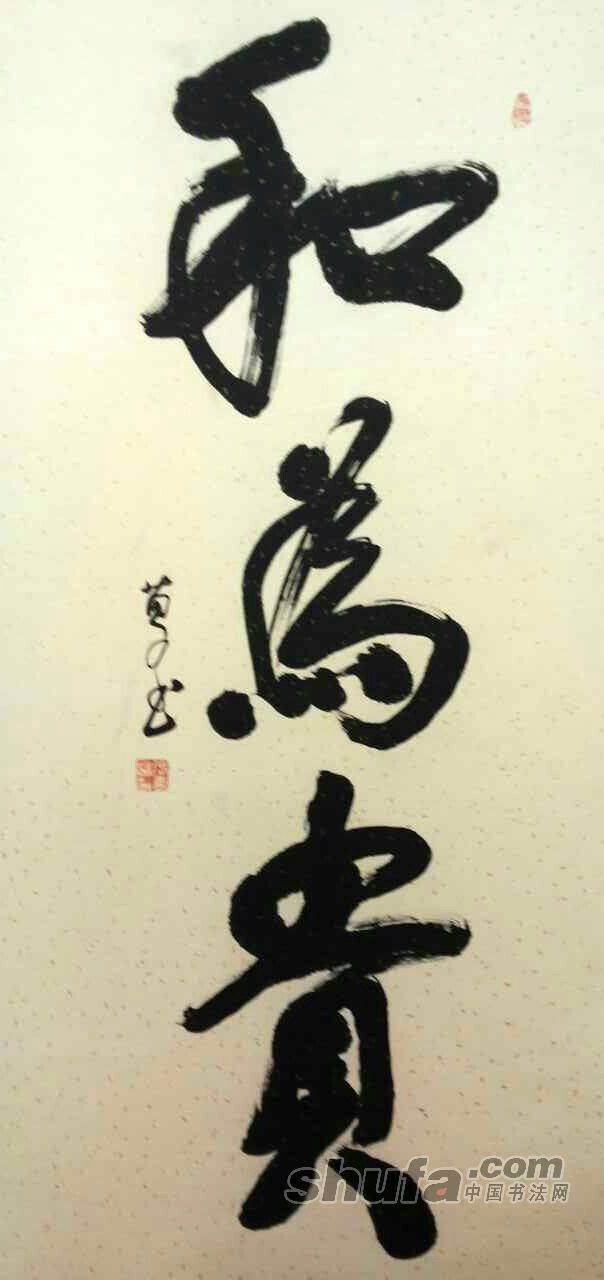 和為貴
shufa.com
中国书法网